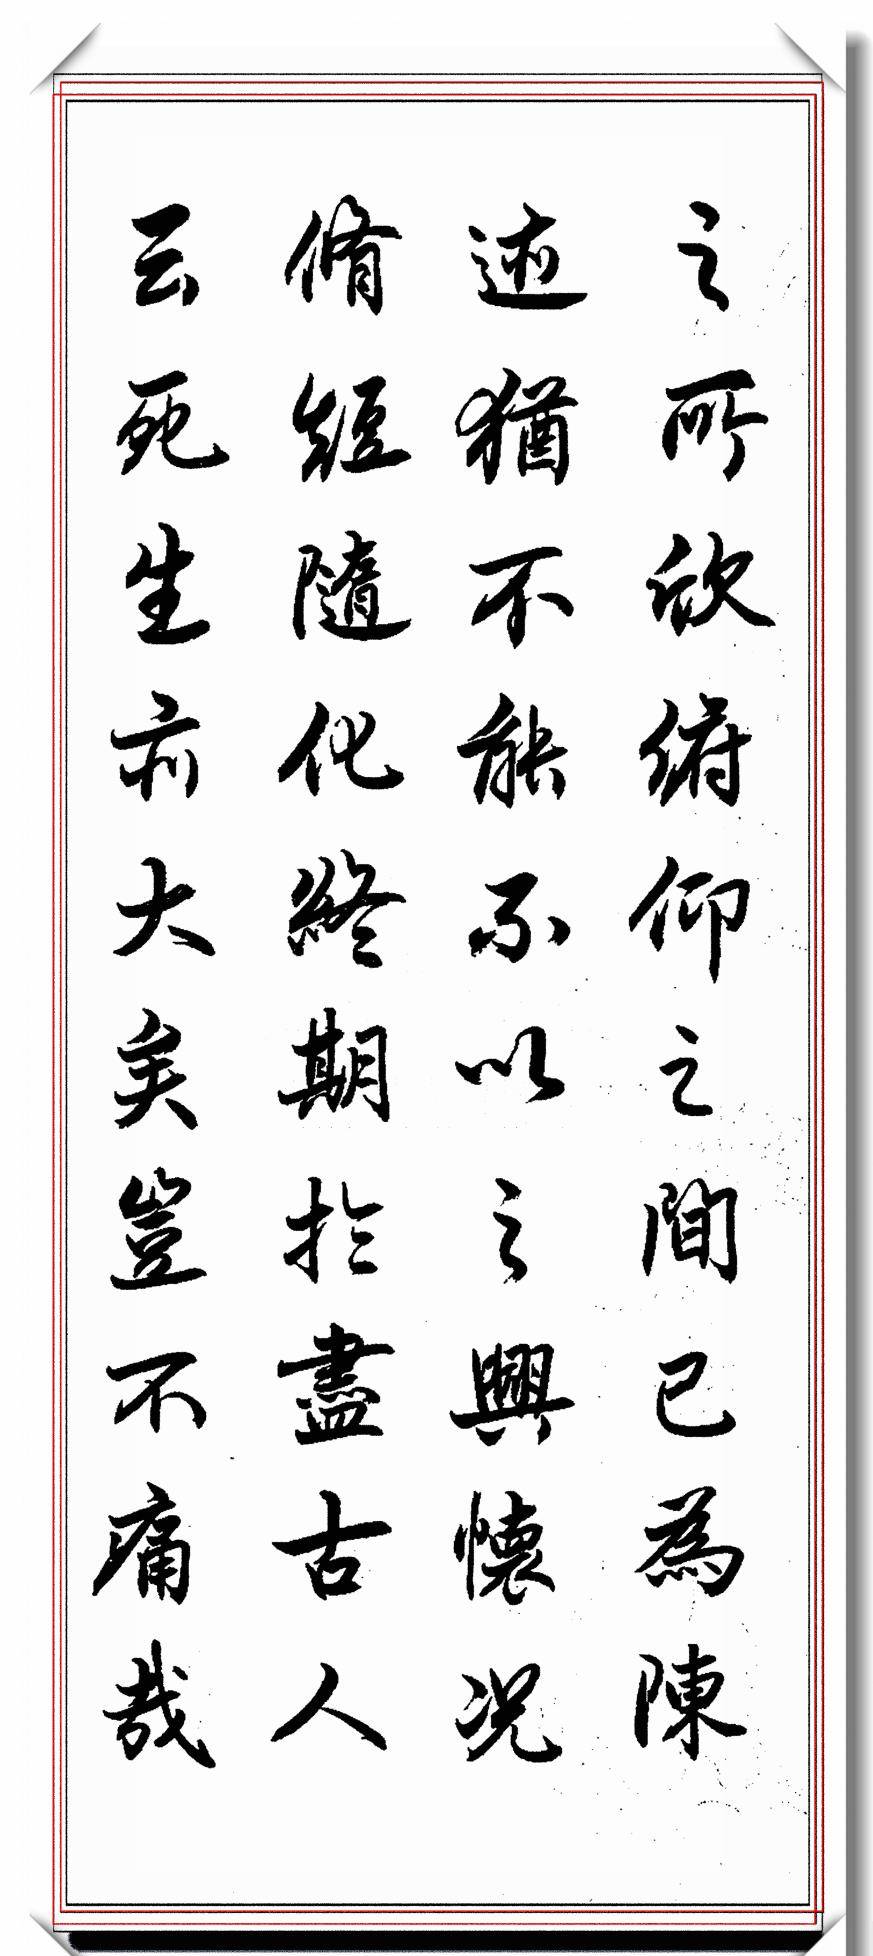 之所欣俯仰之間已為陳
迹猶不能不以之興懷况
脩短隨化終期於盡古人
云死生亦大矣豈不痛哉